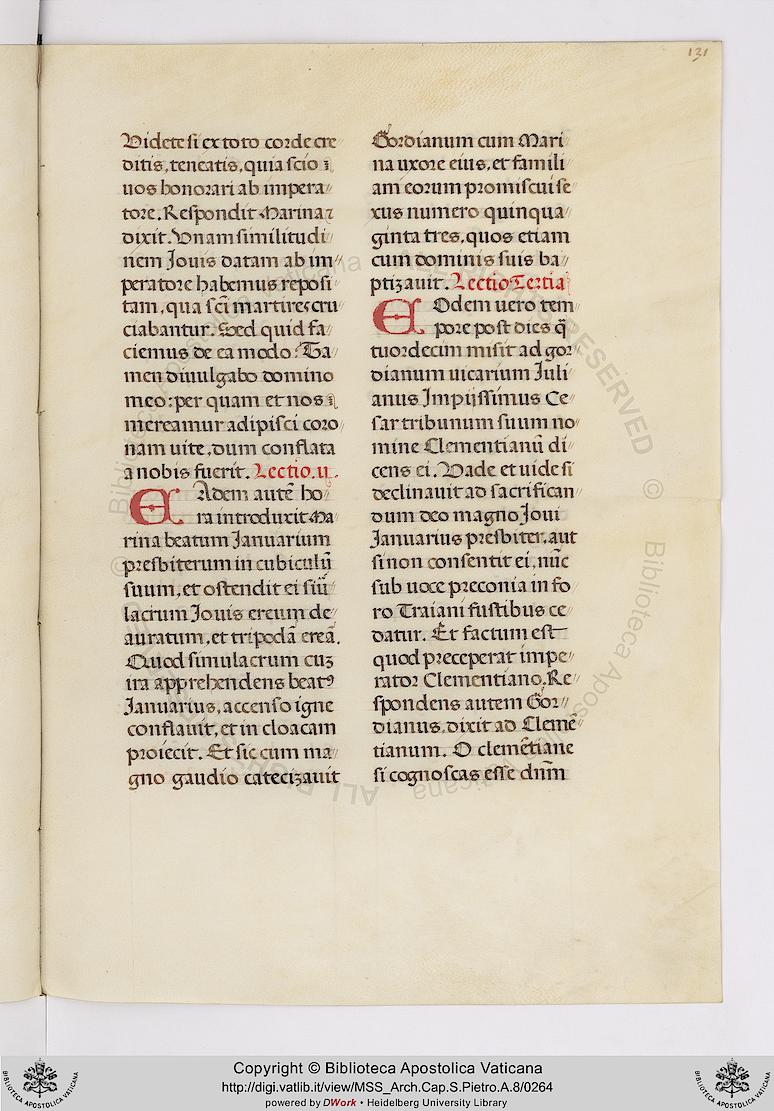 131
Videte si ex toto corde cre
ditis, teneatis, quia scio ⁊
uos honorari ab impera
tore. Respondit Marina ⁊
dixit. Vnam similitudi
nem Jouis datam ab im
peratore habemus reposi
tam, qua sc̄i martires cru
ciabantur. Sed quid fa
ciemus de ea modo? Ta
men diuulgabo domino
meo: per quam et nos
mereamur adipisci coro
nam uite, dum conflata
a nobis fuerit. Lectio. ii.
EAdem autē ho
ra introduxit Ma
rina beatum Januarium
presbiterum in cubiculū
suum, et ostendit ei siū
lacrum Jouis ereum de
auratum, et tripodā ereā.
Quod simulacrum cuꝫ
ira apprehendens beatꝰ
Januarius, accenso igne
conflauit, et in cloacam
proiecit. Et sic cum ma
gno gaudio catecizauit
Gordianum cum Mari
na uxore eius, et famili
am eorum promiscui se
xus numero quinqua
ginta tres, quos etiam
cum dominis suis ba
ptizauit. Lectio Tertia
EOdem uero tem
pore post dies q̄
tuordecim misit ad gor
dianum uicarium Juli
anus Impijssimus Ce
sar tribunum suum no
mine Clementianū di
cens ei. Vade et uide si
declinauit ad sacrifican
dum deo magno Joui
Januarius presbiter, aut
si non consentit ei, nūc
sub uoce preconia in fo
ro Traiani fustibus ce
datur. Et factum est
quod preceperat impe
rator Clementiano. Re
spondens autem Gor
dianus, dixit ad Clemē
tianum. O clemētiane
si cognoscas esse dnm̄
Copyright © Biblioteca Apostolica Vaticana
http://digi.vatlib.it/view/MSS_Arch.Cap.S.Pietro.A.8/0264
powered by DWork • Heidelberg University Library
BIBLIOTECA APOSTOLICA VATICANA
BIBLIOTECA APOSTOLICA VATICANA
© Biblioteca Apostolica Vaticana ALL RIGHTS RESERVED
© Biblioteca Apostolica Vaticana ALL RIGHTS RESERVED